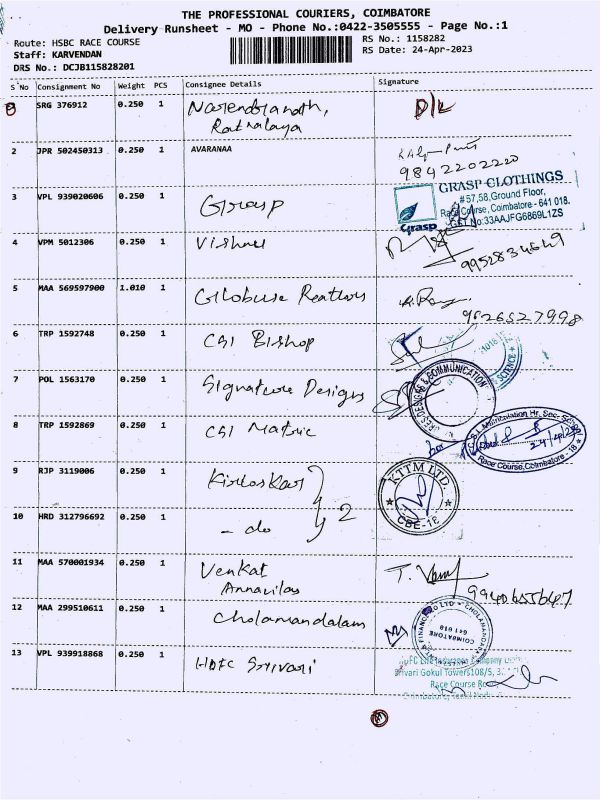 THE PROFESSIONAL COURIERS, COIMBATORE
Delivery Runsheet - MO - Phone No.:0422-3505555 - Page No.:1
Route: HSBC RACE COURSE
RS No.: 1158282
Staff: KARVENDAN
RS Date: 24-Apr-2023
DRS No.: DCJB115828201
S No Consignment No Weight PCS Consignee Details Signature
SRG 376912 0.250 1 Narendranath, D/L
Ratnalaya
2 JPR 502450313 0.250 1 AVARANAA
9842202220
3 VPL 939020606 0.250 1 Grasp
GRASP CLOTHINGS
#57,58,Ground Floor,
Race Course, Coimbatore - 641 018.
GST No:33AAJFG6869L1ZS
Grasp
4 VPM 5012306 0.250 1 Vishnu
9952834649
5 MAA 569597900 1.010 1 Globuse Realtors
9626527998
6 TRP 1592748 0.250 1 CSI Bishop
SCIENCE
7 POL 1563170 0.250 1 Signature Designs
DESIGN & COMMUNICATION
8 TRP 1592869 0.250 1 CSI Matric
C.S.I. Matriculation Hr. Sec. School
24/4/23
Race Course, Coimbatore - 18
9 RJP 3119006 0.250 1 Kirloskar
KTTM LTD.
CBE-18
2
10 HRD 312796692 0.250 1 - do
11 MAA 570001934 0.250 1 Venkat
Annavilas
9940655647
12 MAA 299510611 0.250 1 Cholamandalam
FINANCE CO LTD
CHOLAMANDALAM
COIMBATORE
641 018
13 VPL 939918868 0.250 1 HDFC Srivari
HDFC Life Insurance Company
Srivari Gokul Towers108/5,
Race Course Road